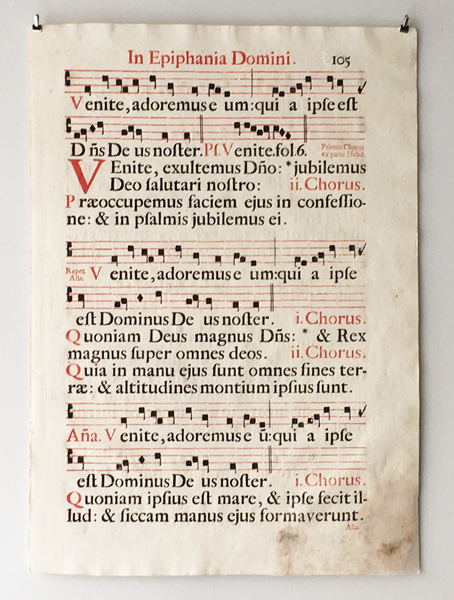 In Epiphania Domini. 105
Venite, adoremus e um: qui a ipſe eſt
Dñs De us noſter. Pſ. Venite. fol. 6. Primus Chorus
ex parte Hebd.
VEnite, exultemus Dño: * jubilemus
Deo ſalutari noſtro: ii. Chorus.
Præoccupemus faciem ejus in confeſſio-
ne: & in pſalmis jubilemus ei.
Repet.
Aña. Venite, adoremus e um: qui a ipſe
eſt Dominus De us noſter. i. Chorus.
Quoniam Deus magnus Dñs: * & Rex
magnus ſuper omnes deos. ii. Chorus.
Quia in manu ejus ſunt omnes fines ter-
ræ: & altitudines montium ipſius ſunt.
Aña. Venite, adoremus e ũ: qui a ipſe
eſt Dominus De us noſter. i. Chorus.
Quoniam ipſius eſt mare, & ipſe fecit il-
lud: & ſiccam manus ejus formaverunt.
Aña.